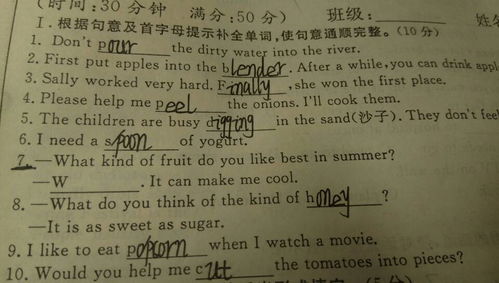 (时间:30 分钟 满分:50 分) 班级: 姓名
I. 根据句意及首字母提示补全单词,使句意通顺完整。(10 分)
1. Don't pour the dirty water into the river.
2. First put apples into the blender. After a while, you can drink appl
3. Sally worked very hard. Finally, she won the first place.
4. Please help me peel the onions. I'll cook them.
5. The children are busy digging in the sand(沙子). They don't feel
6. I need a spoon of yogurt.
7. —What kind of fruit do you like best in summer?
—W________. It can make me cool.
8. —What do you think of the kind of honey?
—It is as sweet as sugar.
9. I like to eat popcorn when I watch a movie.
10. Would you help me cutt the tomatoes into pieces?
(5 分)